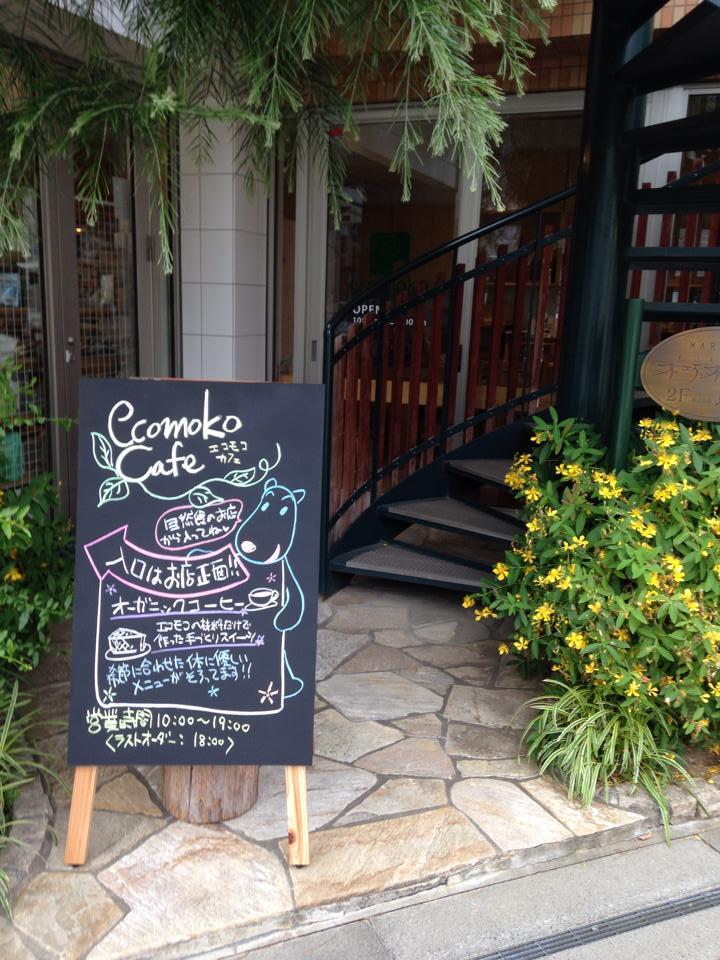 ecomoko
Cafe
エコモコ
カフェ
のお店
から入ってねっ
入口はお店正面!!
オーガニックコーヒー
エコモコの材料だけで
作った手づくりスイーツ
季節に合わせた体に優しい
メニューがそろってます!!
営業時間 10:00〜19:00
<ラストオーダー: 18:00>
OPEN
MAR
2F